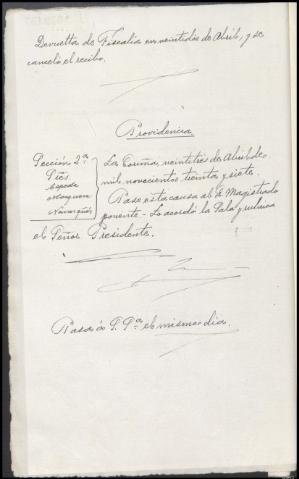 Devuelta de Fiscalia en veintidos de Abril, y se
canceló el recibo.
Providencia
Sección 2ª
Sres
Cepeda
Marquina
Navarro
La Coruña, veintitres de Abril de
mil novecientos treinta y siete.
Pase esta causa al Sr Magistrado
ponente - Lo acordó la Sala y rubrica
el Señor Presidente.
Pasa á S. Sª el mismo dia.